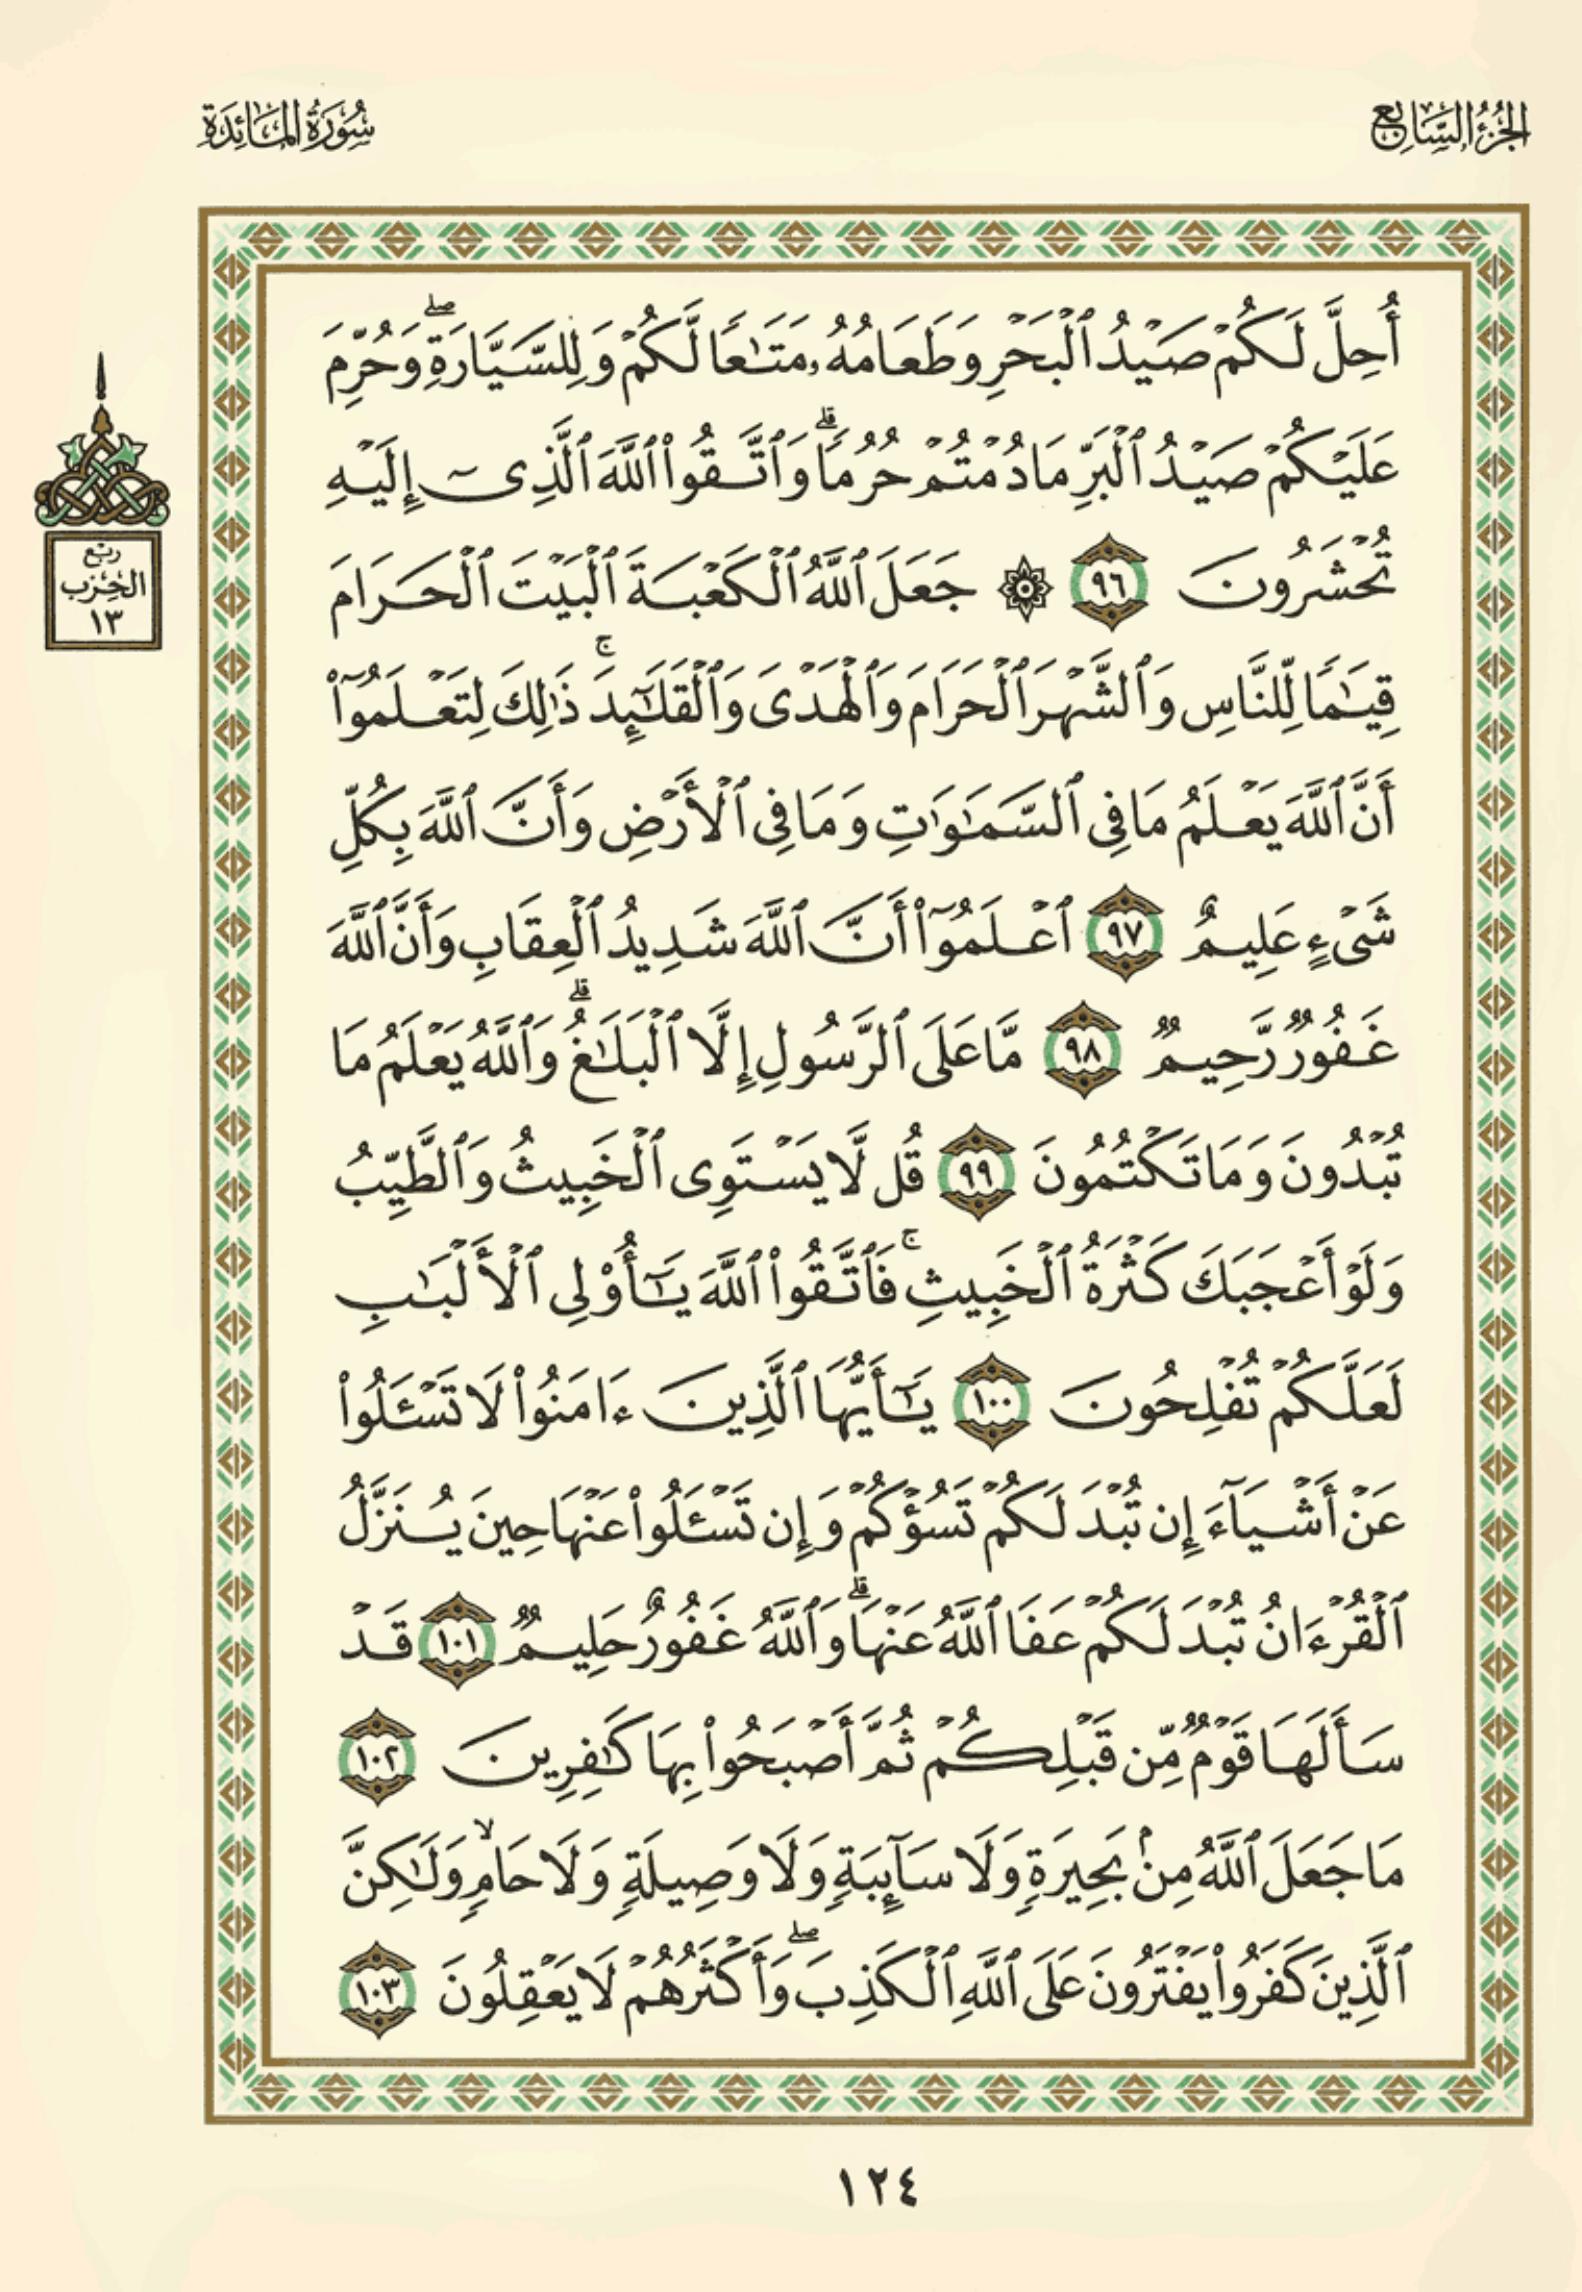 الجزء السابع
سورة المائدة
أُحِلَّ لَكُمْ صَيْدُ ٱلْبَحْرِ وَطَعَامُهُۥ مَتَـٰعًا لَّكُمْ وَلِلسَّيَّارَةِ ۖ وَحُرِّمَ
عَلَيْكُمْ صَيْدُ ٱلْبَرِّ مَا دُمْتُمْ حُرُمًا ۗ وَٱتَّقُوا۟ ٱللَّهَ ٱلَّذِىٓ إِلَيْهِ
تُحْشَرُونَ ٩٦ ۞ جَعَلَ ٱللَّهُ ٱلْكَعْبَةَ ٱلْبَيْتَ ٱلْحَرَامَ
ربع
الحزب
١٣
قِيَـٰمًا لِّلنَّاسِ وَٱلشَّهْرَ ٱلْحَرَامَ وَٱلْهَدْىَ وَٱلْقَلَـٰٓئِدَ ۚ ذَٰلِكَ لِتَعْلَمُوٓا۟
أَنَّ ٱللَّهَ يَعْلَمُ مَا فِى ٱلسَّمَـٰوَٰتِ وَمَا فِى ٱلْأَرْضِ وَأَنَّ ٱللَّهَ بِكُلِّ
شَىْءٍ عَلِيمٌ ٩٧ ٱعْلَمُوٓا۟ أَنَّ ٱللَّهَ شَدِيدُ ٱلْعِقَابِ وَأَنَّ ٱللَّهَ
غَفُورٌ رَّحِيمٌ ٩٨ مَّا عَلَى ٱلرَّسُولِ إِلَّا ٱلْبَلَـٰغُ ۗ وَٱللَّهُ يَعْلَمُ مَا
تُبْدُونَ وَمَا تَكْتُمُونَ ٩٩ قُل لَّا يَسْتَوِى ٱلْخَبِيثُ وَٱلطَّيِّبُ
وَلَوْ أَعْجَبَكَ كَثْرَةُ ٱلْخَبِيثِ ۚ فَٱتَّقُوا۟ ٱللَّهَ يَـٰٓأُو۟لِى ٱلْأَلْبَـٰبِ
لَعَلَّكُمْ تُفْلِحُونَ ١٠٠ يَـٰٓأَيُّهَا ٱلَّذِينَ ءَامَنُوا۟ لَا تَسْـَٔلُوا۟
عَنْ أَشْيَآءَ إِن تُبْدَ لَكُمْ تَسُؤْكُمْ وَإِن تَسْـَٔلُوا۟ عَنْهَا حِينَ يُنَزَّلُ
ٱلْقُرْءَانُ تُبْدَ لَكُمْ عَفَا ٱللَّهُ عَنْهَا ۗ وَٱللَّهُ غَفُورٌ حَلِيمٌ ١٠١ قَدْ
سَأَلَهَا قَوْمٌ مِّن قَبْلِكُمْ ثُمَّ أَصْبَحُوا۟ بِهَا كَـٰفِرِينَ ١٠٢
مَا جَعَلَ ٱللَّهُ مِنۢ بَحِيرَةٍ وَلَا سَآئِبَةٍ وَلَا وَصِيلَةٍ وَلَا حَامٍ ۙ وَلَـٰكِنَّ
ٱلَّذِينَ كَفَرُوا۟ يَفْتَرُونَ عَلَى ٱللَّهِ ٱلْكَذِبَ ۖ وَأَكْثَرُهُمْ لَا يَعْقِلُونَ ١٠٣
١٢٤